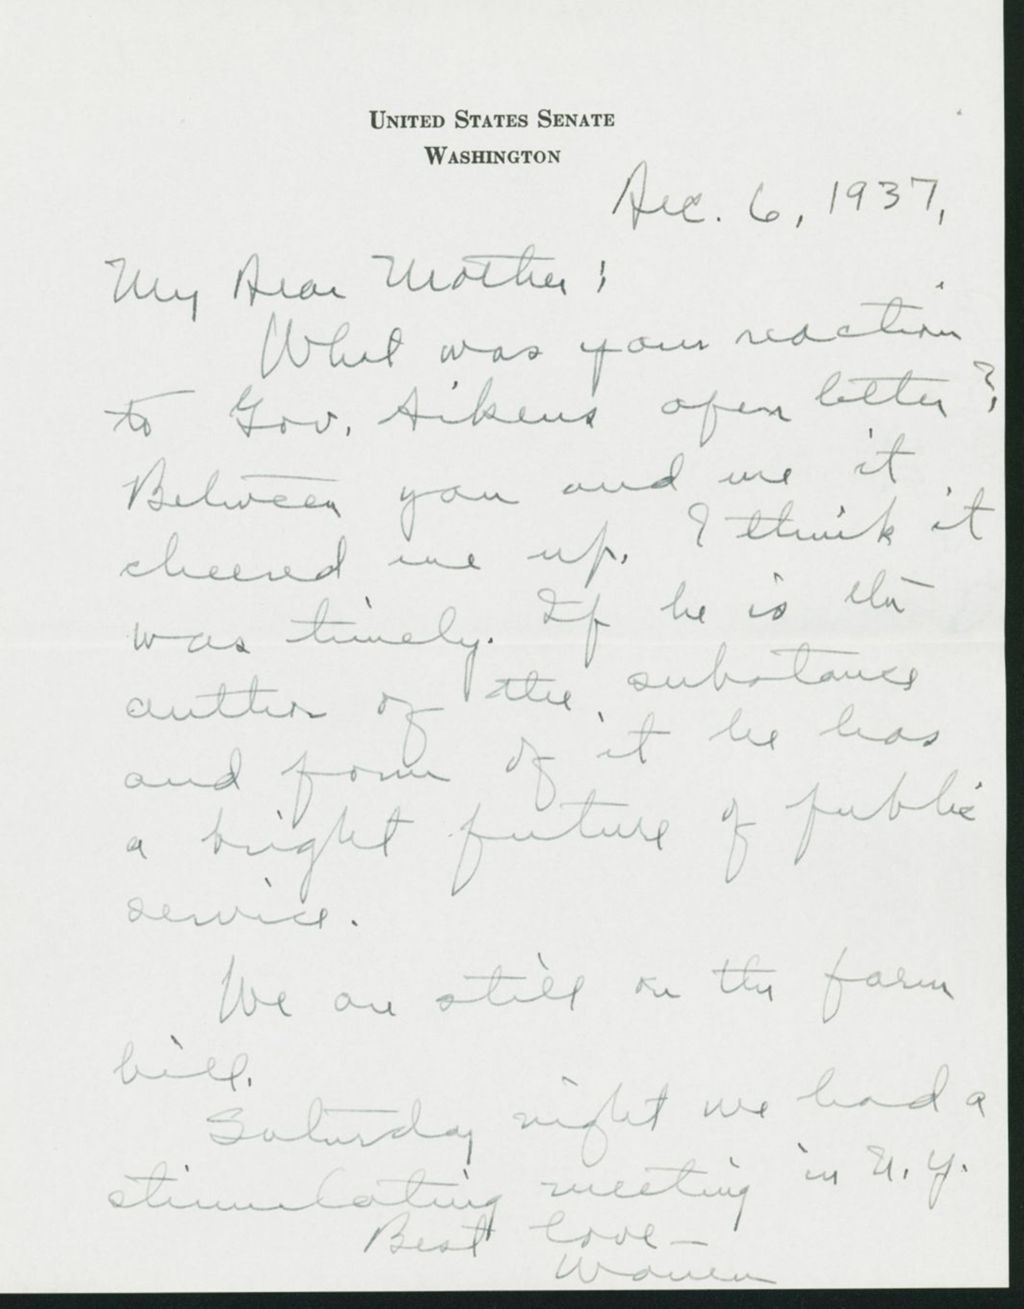 UNITED STATES SENATE
WASHINGTON
Dec. 6, 1937,
My Dear Mother;
What was your reaction
to Gov. Aikens open letter?
Between you and me it
cheered me up. I think it
was timely. If he is the
author of the substance
and form of it he has
a bright future of public
service.
We are still on the farm
bill.
Saturday night we had a
stimulating meeting in N.Y.
Best love—
Warren